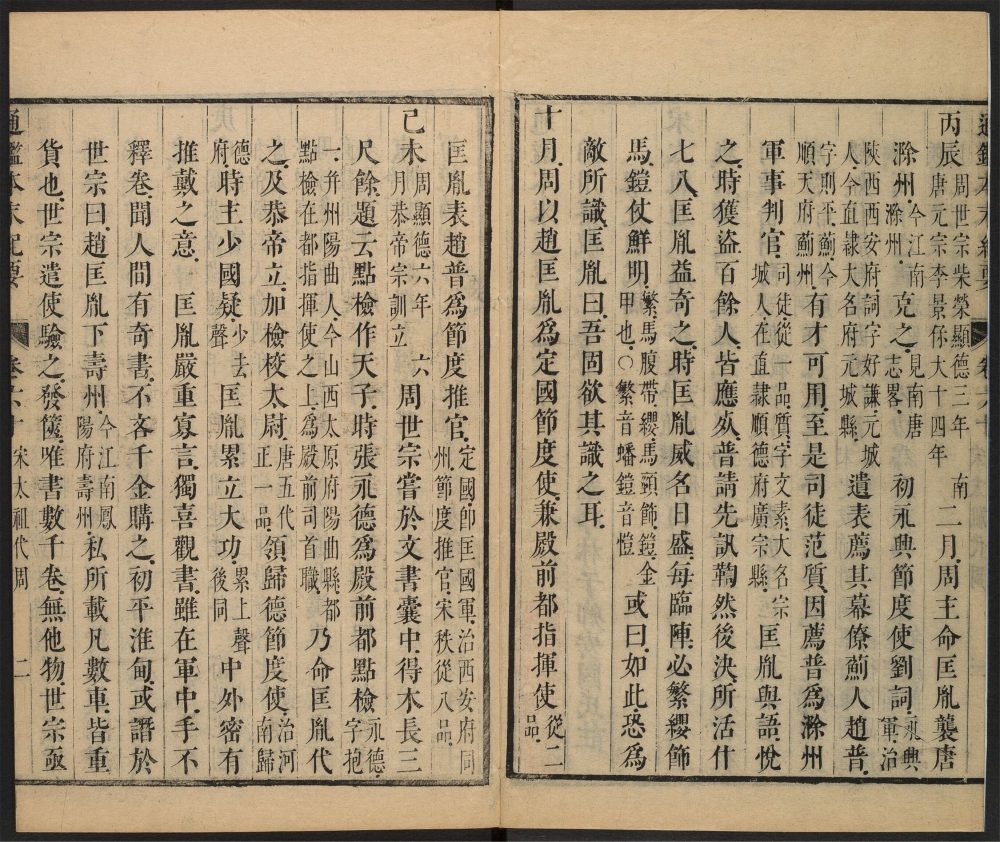 丙辰周世宗柴榮顯德三年南唐元宗李景保大十四年二月周主命匡胤襲唐
滁州今江南滁州克之見南唐志畧初永興節度使劉詞永興軍治
陝西西安府詞字好謙元城人今直隸大名府元城縣遺表薦其幕僚薊人趙普
字則平薊今順天府薊州有才可用至是司徒范質因薦普爲滁州
軍事判官司徒從一品質字文素大名宗城人在直隸順德府廣宗縣匡胤與語悅
之時獲盜百餘人皆應死普請先訊鞫然後決所活什
七八匡胤益奇之時匡胤威名日盛每臨陣必繁纓飾
馬鎧仗鮮明繁馬腹帶纓馬頸飾鎧金甲也○繁音蟠鎧音愷或曰如此恐爲
敵所識匡胤曰吾固欲其識之耳
十月周以趙匡胤爲定國節度使兼殿前都指揮使從二品
匡胤表趙普爲節度推官定國師匡國軍治西安府同州節度推官宋秩從八品
己未周顯德六年六月恭帝宗訓立周世宗嘗於文書囊中得木長三
尺餘題云點檢作天子時張永德爲殿前都點檢永德字抱
一并州陽曲人今山西太原府陽曲縣都點檢在都指揮使之上爲殿前司首職乃命匡胤代
之及恭帝立加檢校太尉唐五代正一品領歸德節度使治河南歸
德府時主少國疑少去聲匡胤累立大功累上聲後同中外密有
推戴之意匡胤嚴重寡言獨喜觀書雖在軍中手不
釋卷聞人間有奇書不吝千金購之初平淮甸或譖於
世宗曰趙匡胤下壽州今江南鳳陽府壽州私所載凡數車皆重
貨也世宗遣使驗之發篋唯書數千卷無他物世宗亟
通鑑本末紀要 宋太祖代周 二